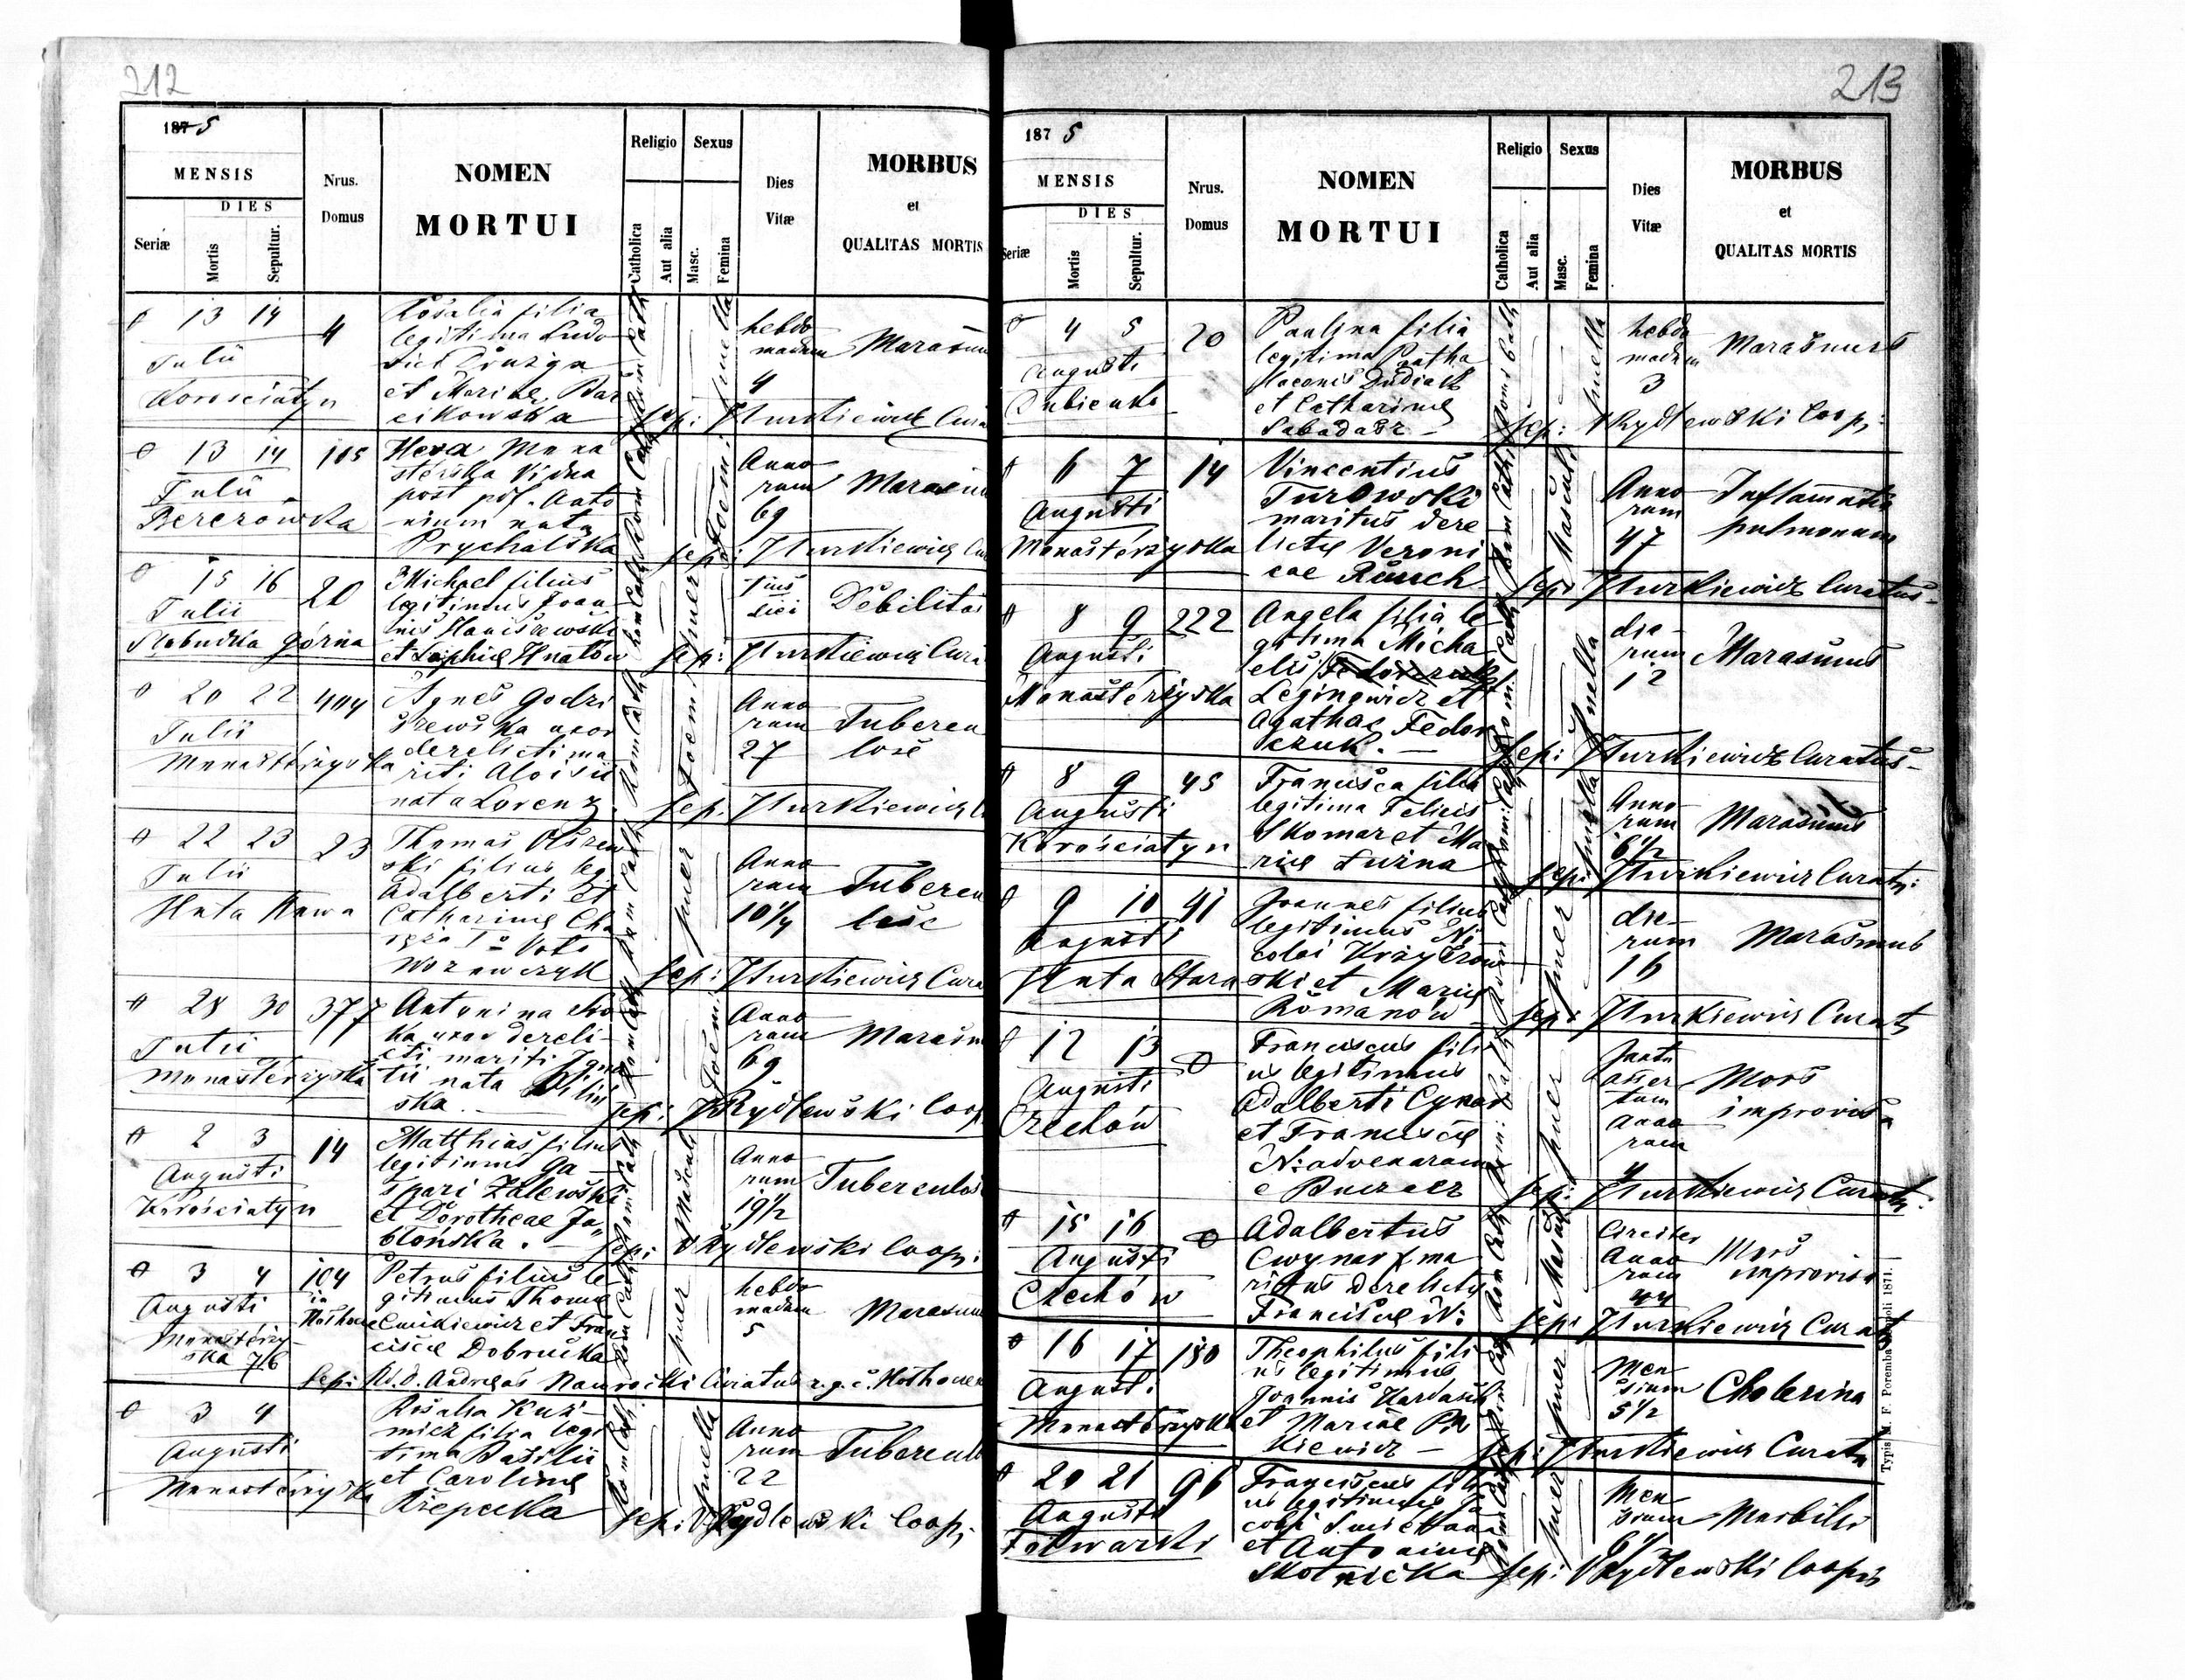 212
1875
MENSIS
DIES
Seriæ
Mortis
Sepultur.
Nrus.
Domus
NOMEN
MORTUI
Religio
Catholica
Aut alia
Sexus
Masc.
Femina
Dies
Vitæ
MORBUS
et
QUALITAS MORTIS
13 14
Julii
Korościatyn
4
Rosalia filia
legitima Ludo
et Mariae Bar
cikowska
Rom Cath
puella
hebdo
madum
4
Marasmu
sep: JTurkiewicz Cura
13 14
Julii
Bereżówka
105
Mona
sterska Vidua
post pdf. Anto
nium nata
Prychalska
Rom Cath
Foemi
Anno
rum
69
Marasmu
sep: JTurkiewicz Cu
15 16
Julii
Słobudka górna
20
Michael filius
legitimus Joan
nis Staniszewski
et Sophiae Hnatów
Rom Cath
puer
Debilitas
sep: JTurkiewicz Cura
20 22
Julii
Monasterzyska
404
Agnes Godzi
szewska uxor
derelicti ma
riti Aloisii
nata Lorenz
Rom Cath
Foemi
Anno
rum
27
Tubercu
lose
sep: JTurkiewicz C
22 23
Julii
Huta Nowa
23
Thomas Olszew
ski filius leg.
Adalberti et
Catharinae Cha
Voto
Wozewczyk
Rom Cath
puer
Anno
rum
10¼
Tubercu
lose
sep: JTurkiewicz Cura
28 30
Julii
Monasterzyska
377
Antonina
ka uxor dereli
cti mariti Igna
tii nata Bilin
ska
Rom Cath
Foemi
Anno
rum
69
Marasm
sep: VRydlewski Coop
2 3
Augusti
Korościatyn
14
Matthias filius
legitimus Ga
spari Zalewski
et Dorotheae Ja
błońska.
Rom Cath
Masculi
Anno
rum
19½
Tuberculos
sep: VRydlewski Coop:
3 4
Augusti
Monasterzy
ska 76
104
in
Petrus filius le
gitimus Thomae
Cwikiewicz et Fran
ciscae Dobrucka
Rom Cath
puer
hebdo
madum
5
Marasmu
sep: Rd. d. Andreas Nawrocki Curatus r.g.c.
3 4
Augusti
Monasterzyska
Rosalia Kuź
micz filia legi
tima Basilii
et Carolinae
Rzepecka
Rom Cath
puella
Anno
rum
22
Tubercul
sep: VRydlewski Coop:
213
1875
MENSIS
DIES
Seriæ
Mortis
Sepultur.
Nrus.
Domus
NOMEN
MORTUI
Religio
Catholica
Aut alia
Sexus
Masc.
Femina
Dies
Vitæ
MORBUS
et
QUALITAS MORTIS
4 5
Augusti
Dubienko
20
Paulina filia
legitima Pantha
leonis Dudiak
et Catharinae
Sabadasz
Romi Cath
puella
hebdo
madum
3
Marasmus
sep: VRydlewski Coop:
6 7
Augusti
Monasterzyska
14
Vincentius
Turowski
maritus dere
lictae Veroni
cae Rusch
Rom Cath
Masculi
Anno
rum
47
Inflamatio
pulmonum
sep: JTurkiewicz Curatus
8 9
Augusti
Monasterzyska
222
Angela filia le
gitima Micha
elis Fedorczuk
Leginowicz et
Agathae Fedor
czuk.
Romi Cath
puella
die
rum
12
Marasmus
sep: JTurkiewicz Curatus
8 9
Augusti
Korościatyn
45
Francisca filia
legitima Felicis
Skomar et Ma
riae Luzna
Romi Cath
puella
Anno
rum
6½
Marasmus
sep: JTurkiewicz Curats:
9 10
Augusti
Huta Stara
41
Joannes filius
legitimus Ni
colai Krzyżanow
ski et Mariae
Romanow
Romi Cath
puer
die
rum
16
Marasmus
sep: JTurkiewicz Curats
12 13
Augusti
Czechów
Franciscus fili
us legitimus
Adalberti Cynar
et Franciscae
N: advenarum
e Buczacz
Romi Cath
puer
juxta
asser
tum
Anno
rum
4
Mors
improvisa
sep: JTurkiewicz Curats:
15 16
Augusti
Czechów
Adalbertus
Cwynar ma
ritus derelictae
Franciscae N:
Rom Cath
Masculi
Circiter
Anno
rum
44
Mors
improvisa
sep: JTurkiewicz Curats
16 17
Augusti
Monasterzyska
180
Theophilus fili
us legitimus
Joannis Hardasik
et Mariae Pin
kiewicz
Rom Cath
puer
Men
sium
5½
Cholerina
sep: JTurkiewicz Curats
20 21
Augusti
Folwarki
96
Franciscus fili
us legitimus Ja
cobi
et Antoninae
Skotnicka
Romi Cath
puer
Men
sium
Morbilli
sep: VRydlewski Cooprs
Typis M. F. Poremba Tarnopoli 1871.